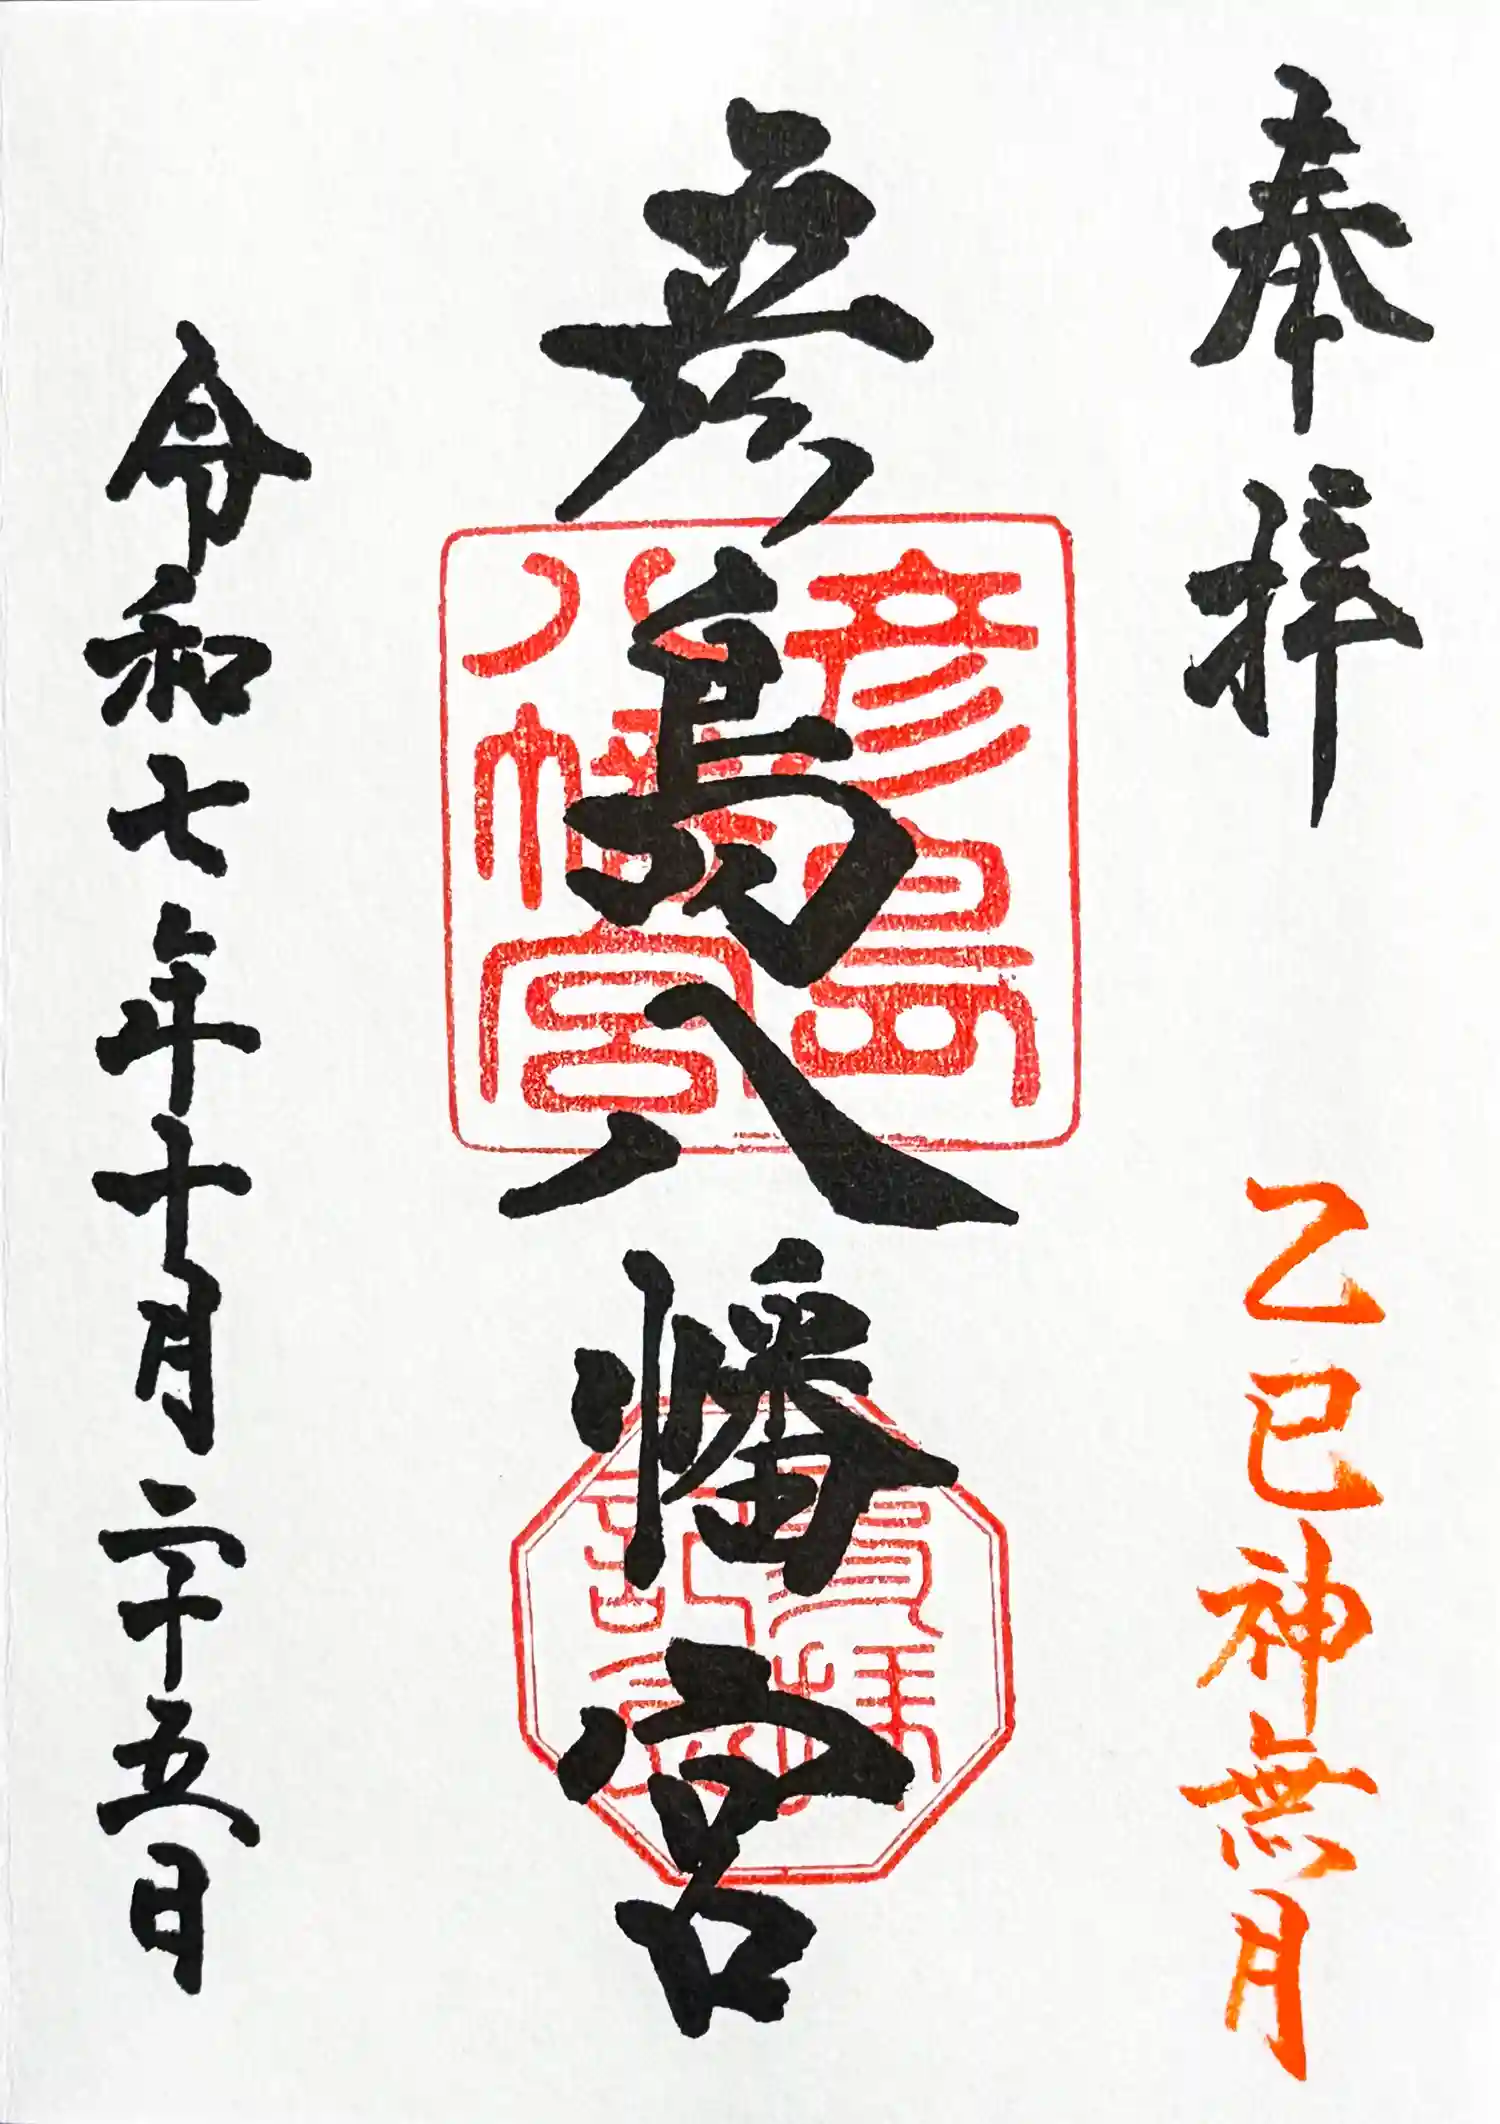 奉拝
乙巳神無月
彦島八幡宮
彦島
八幡宮
令和七年十月二十五日